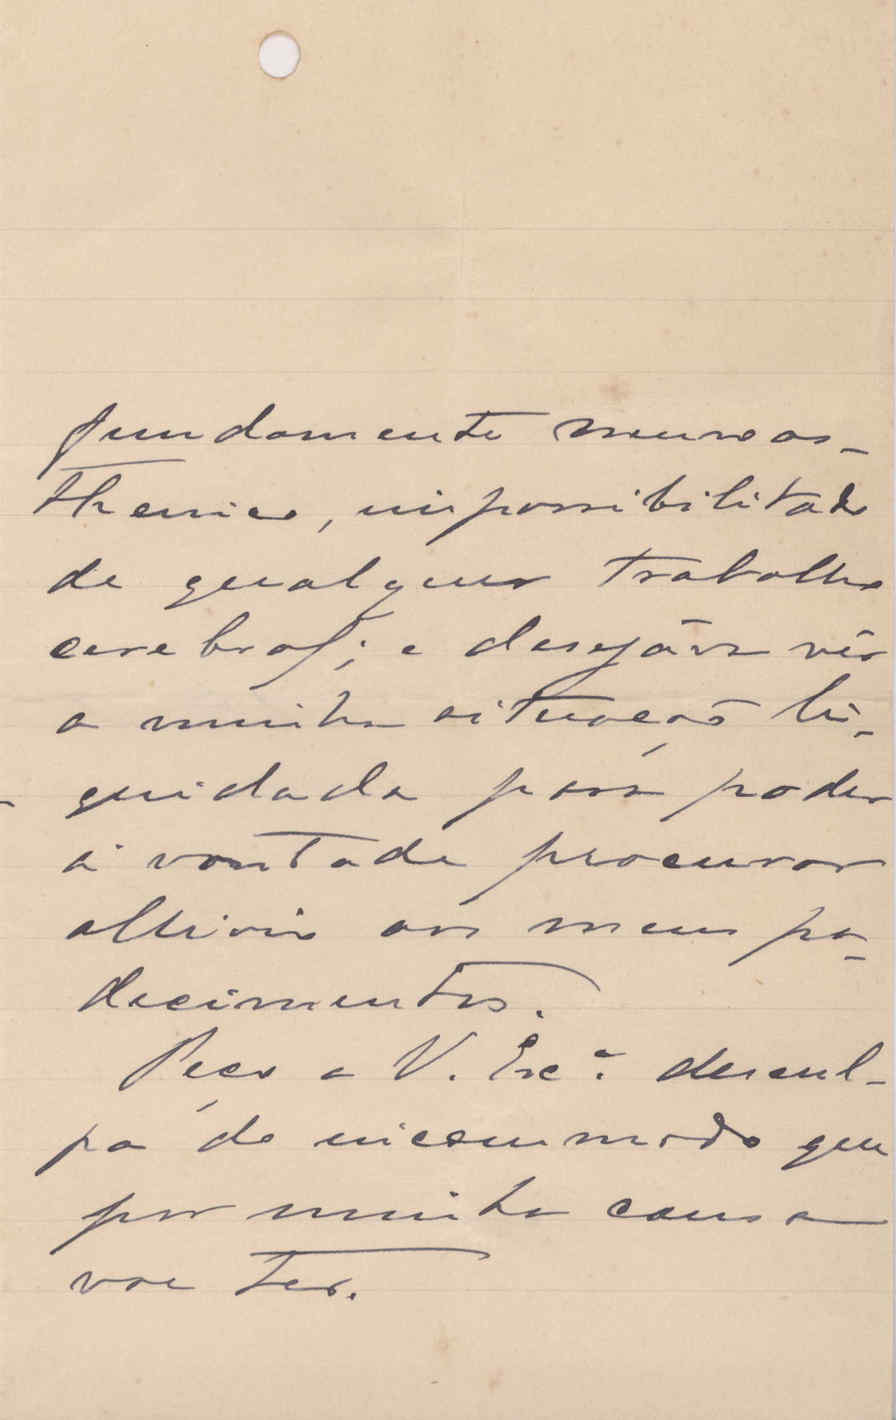 fundamente neuras-
thenico, impossibilitado
de qualquer trabalho
cerebral; e desejava vêr
a minha situação li-
quidada para poder
á vontade procurar
allivio aos meus pa-
decimentos.
Peço a V. Exc.ª descul-
pa do incommodo que
por minha causa
vae ter.